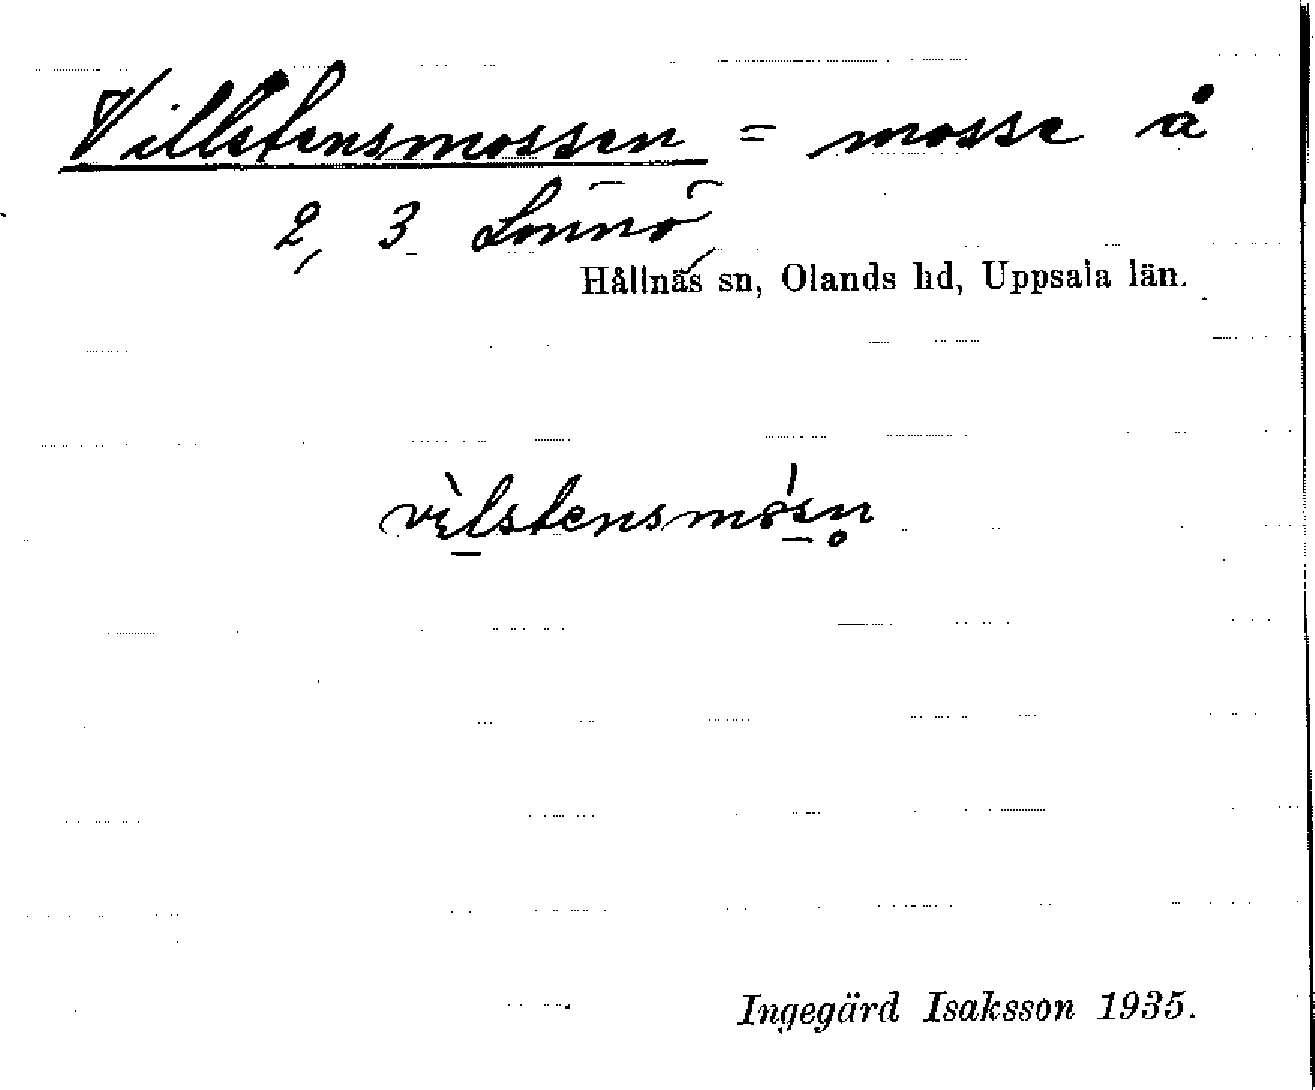 Villstensmossen = mosse å
2, 3 Lönnö,
Hållnäs sn, Olands hd, Uppsala län.
vìlstensmósn̥
Ingegärd Isaksson 1935.